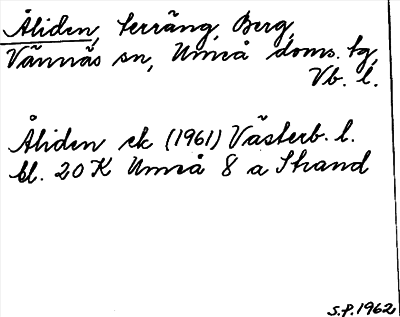 Åliden, terräng, Berg,
Vännäs sn, Umeå doms. tg,
Vb. l.
Åliden ek (1961) Västerb. l.
bl. 20 K Umeå 8 a Strand
S.P. 1962